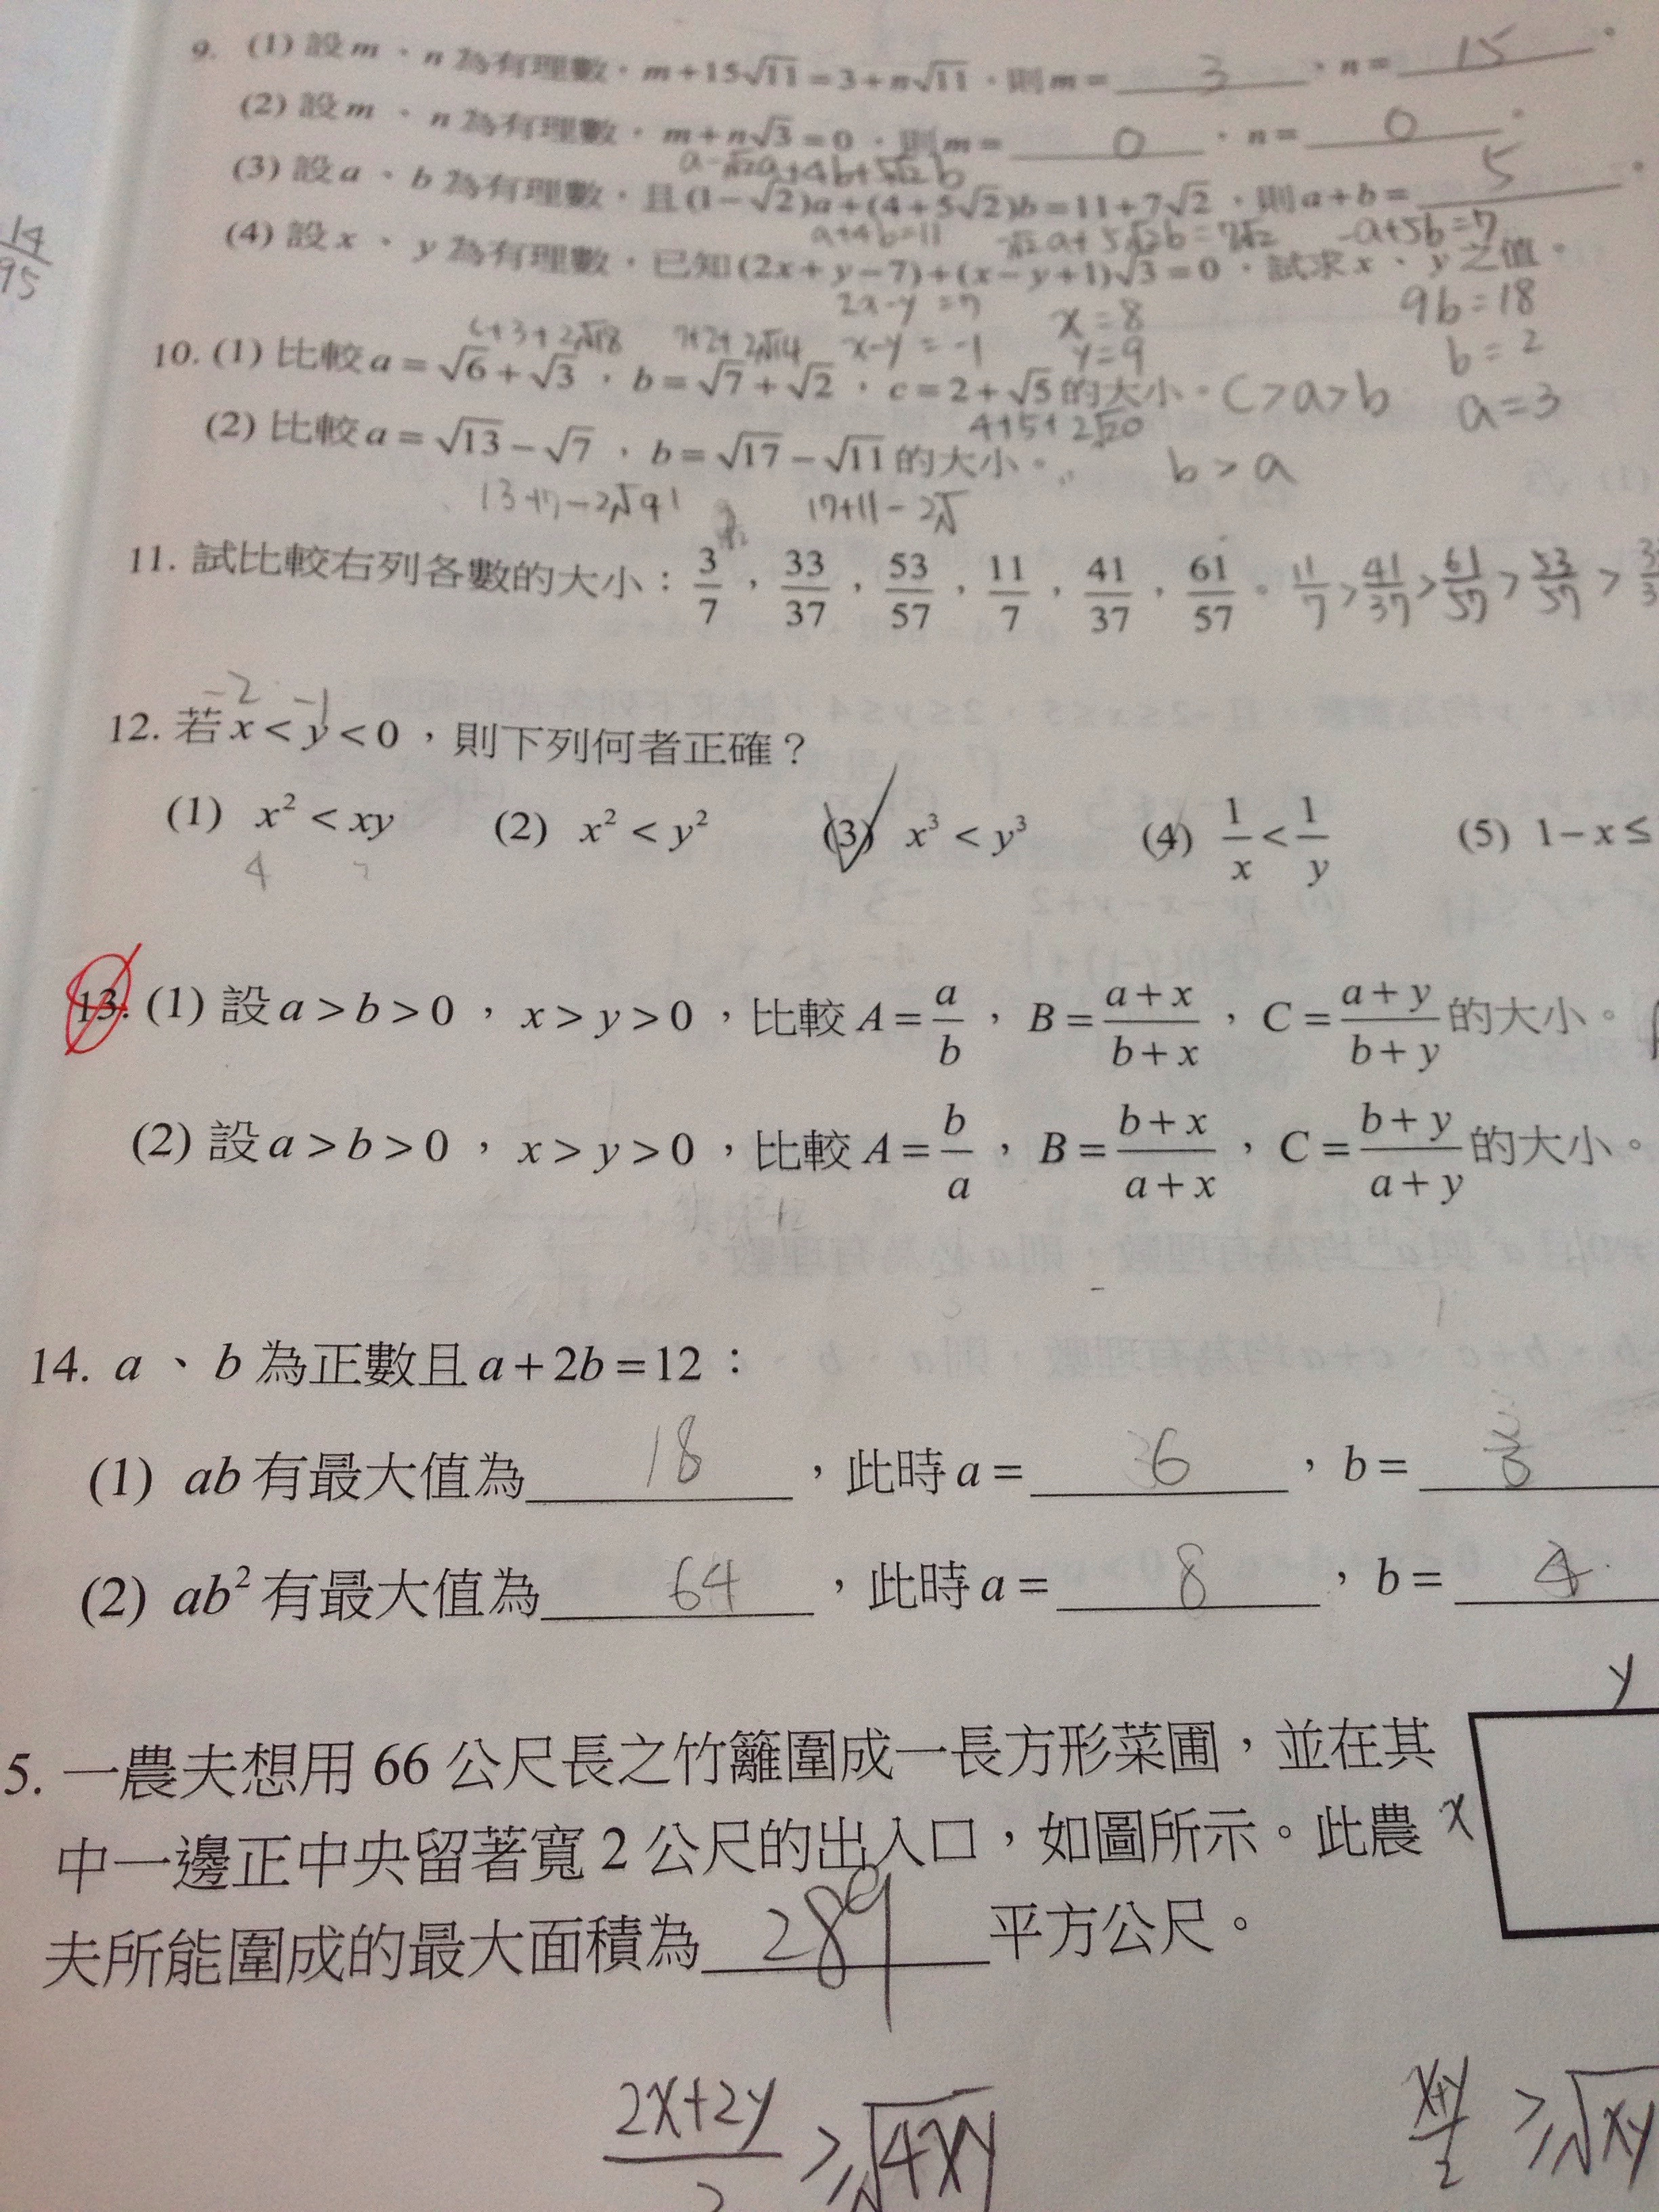 9. (1) 設 m、n 為有理數，m+15√11=3+n√11，則 m= 3 ，n= 15 。
(2) 設 m、n 為有理數，m+n√3=0，則 m= 0 ，n= 0 。
a-√2a+4b+5√2b
(3) 設 a、b 為有理數，且(1-√2)a+(4+5√2)b=11+7√2，則 a+b= 5 。
a+4b=11 -√2a+5√2b=7√2 -a+5b=7
(4) 設 x、y 為有理數，已知(2x+y-7)+(x-y+1)√3=0，試求 x、y 之值。
2x-y=7 x=8 9b=18
6+3+2√18 7+2+2√14 x-y=-1 y=9 b=2
10. (1) 比較 a=√6+√3，b=√7+√2，c=2+√5 的大小。c>a>b a=3
4+5+2√20
(2) 比較 a=√13-√7，b=√17-√11 的大小。 b>a
13+7-2√91 17+11-2√
11. 試比較右列各數的大小：3/7，33/37，53/57，11/7，41/37，61/57。11/7>41/37>61/57>53/57>
14/95
-2 -1
12. 若 x<y<0，則下列何者正確？
(1) x²<xy (2) x²<y² (3) x³<y³ (4) 1/x<1/y (5) 1-x≤
4
13. (1) 設 a>b>0，x>y>0，比較 A=a/b，B=(a+x)/(b+x)，C=(a+y)/(b+y) 的大小。
(2) 設 a>b>0，x>y>0，比較 A=b/a，B=(b+x)/(a+x)，C=(b+y)/(a+y) 的大小。
14. a、b 為正數且 a+2b=12：
(1) ab 有最大值為 18 ，此時 a= 6 ，b= 3
(2) ab² 有最大值為 64 ，此時 a= 8 ，b= 4
y
5. 一農夫想用 66 公尺長之竹籬圍成一長方形菜圃，並在其
中一邊正中央留著寬 2 公尺的出入口，如圖所示。此農 x
夫所能圍成的最大面積為 289 平方公尺。
(2x+2y)/2 ≥ √4xy (x+y)/2 ≥ √xy